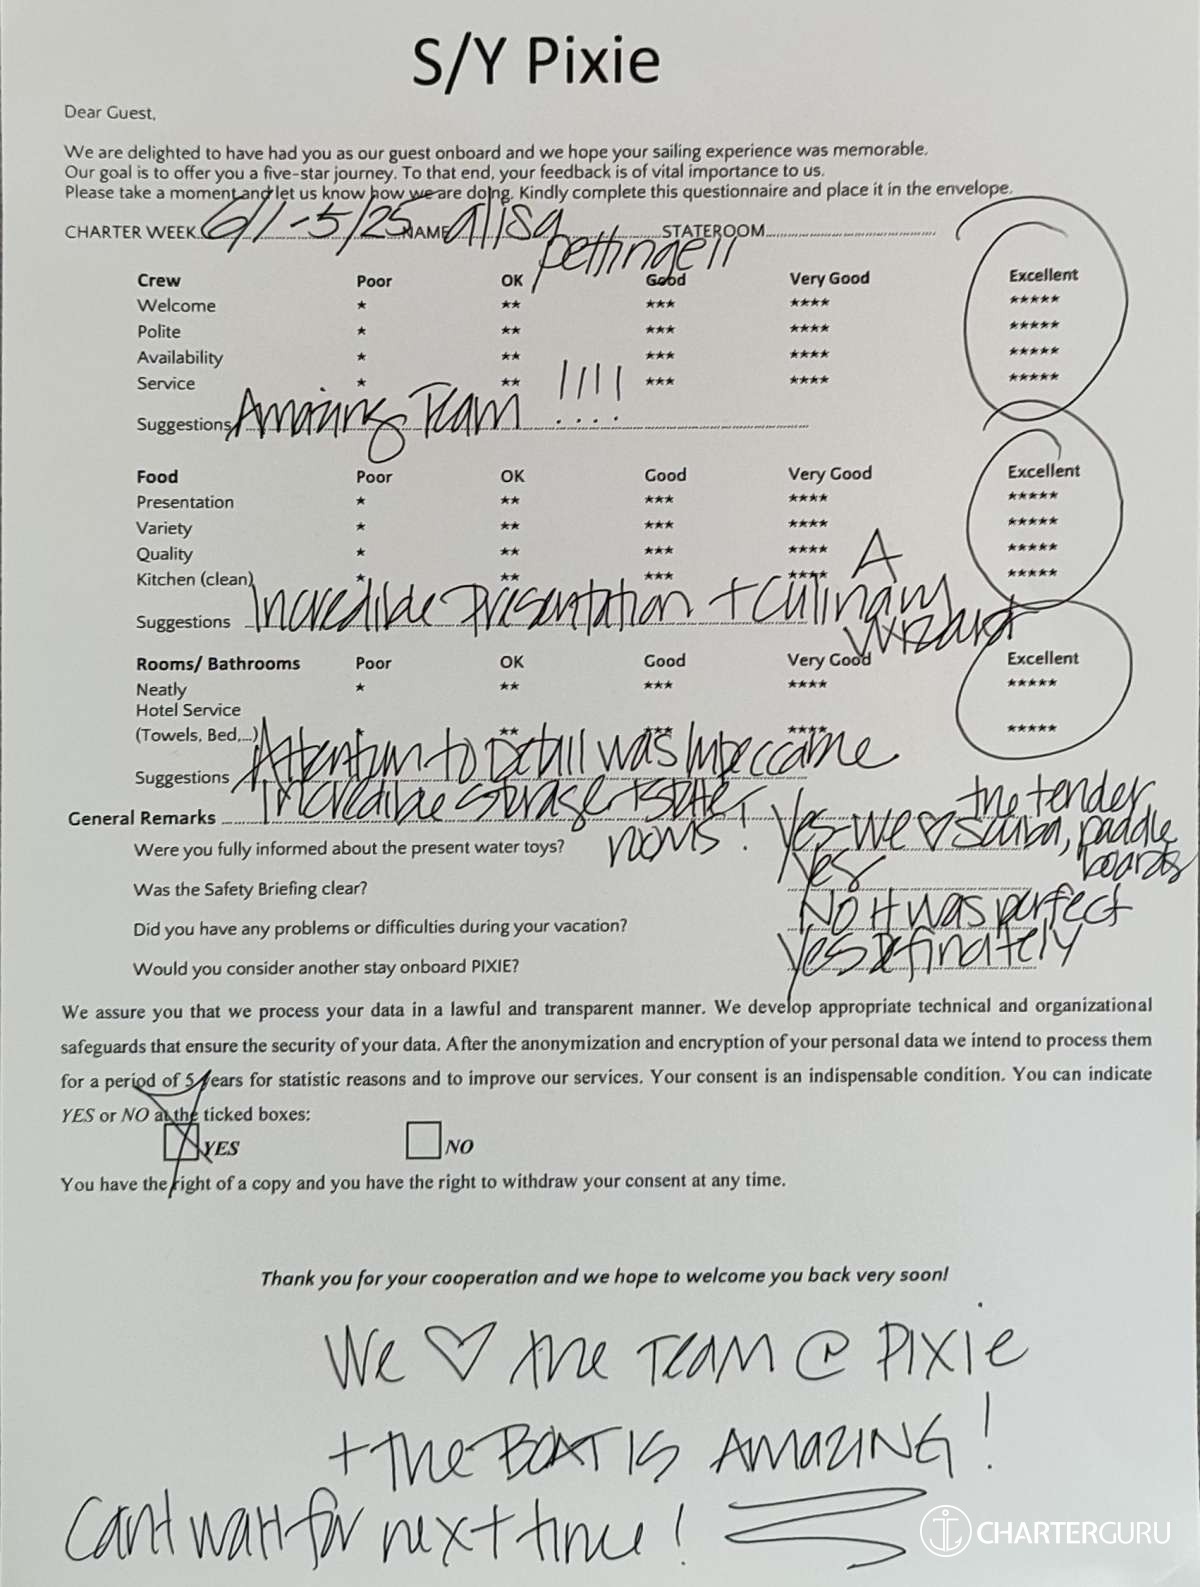 S/Y Pixie
Dear Guest,
We are delighted to have had you as our guest onboard and we hope your sailing experience was memorable.
Our goal is to offer you a five-star journey. To that end, your feedback is of vital importance to us.
Please take a moment and let us know how we are doing. Kindly complete this questionnaire and place it in the envelope.
CHARTER WEEK 6/1-5/25 NAME alisa pettingell STATEROOM
Crew Poor OK Good Very Good Excellent
Welcome ★ ★★ ★★★ ★★★★ ★★★★★
Polite ★ ★★ ★★★ ★★★★ ★★★★★
Availability ★ ★★ ★★★ ★★★★ ★★★★★
Service ★ ★★ ★★★ ★★★★ ★★★★★
Suggestions Amazing Team !!!!
Food Poor OK Good Very Good Excellent
Presentation ★ ★★ ★★★ ★★★★ ★★★★★
Variety ★ ★★ ★★★ ★★★★ ★★★★★
Quality ★ ★★ ★★★ ★★★★ ★★★★★
Kitchen (clean) ★ ★★ ★★★ ★★★★ ★★★★★
Suggestions Incredible Presentation + A Culinary Wizard
Rooms/ Bathrooms Poor OK Good Very Good Excellent
Neatly ★ ★★ ★★★ ★★★★ ★★★★★
Hotel Service
(Towels, Bed,...) ★★ ★★★ ★★★★ ★★★★★
Suggestions Attention to Detail was Impeccable
General Remarks Incredible storage + State rooms!
Were you fully informed about the present water toys? Yes-We ♡ the tender Scuba, paddle boards
Was the Safety Briefing clear? Yes
Did you have any problems or difficulties during your vacation? No it was perfect
Would you consider another stay onboard PIXIE? Yes Definately
We assure you that we process your data in a lawful and transparent manner. We develop appropriate technical and organizational
safeguards that ensure the security of your data. After the anonymization and encryption of your personal data we intend to process them
for a period of 5 years for statistic reasons and to improve our services. Your consent is an indispensable condition. You can indicate
YES or NO at the ticked boxes:
YES NO
You have the right of a copy and you have the right to withdraw your consent at any time.
Thank you for your cooperation and we hope to welcome you back very soon!
We ♡ the Team @ Pixie
+ the BOAT IS AMAZING!
Cant wait for next time!
CHARTERGURU